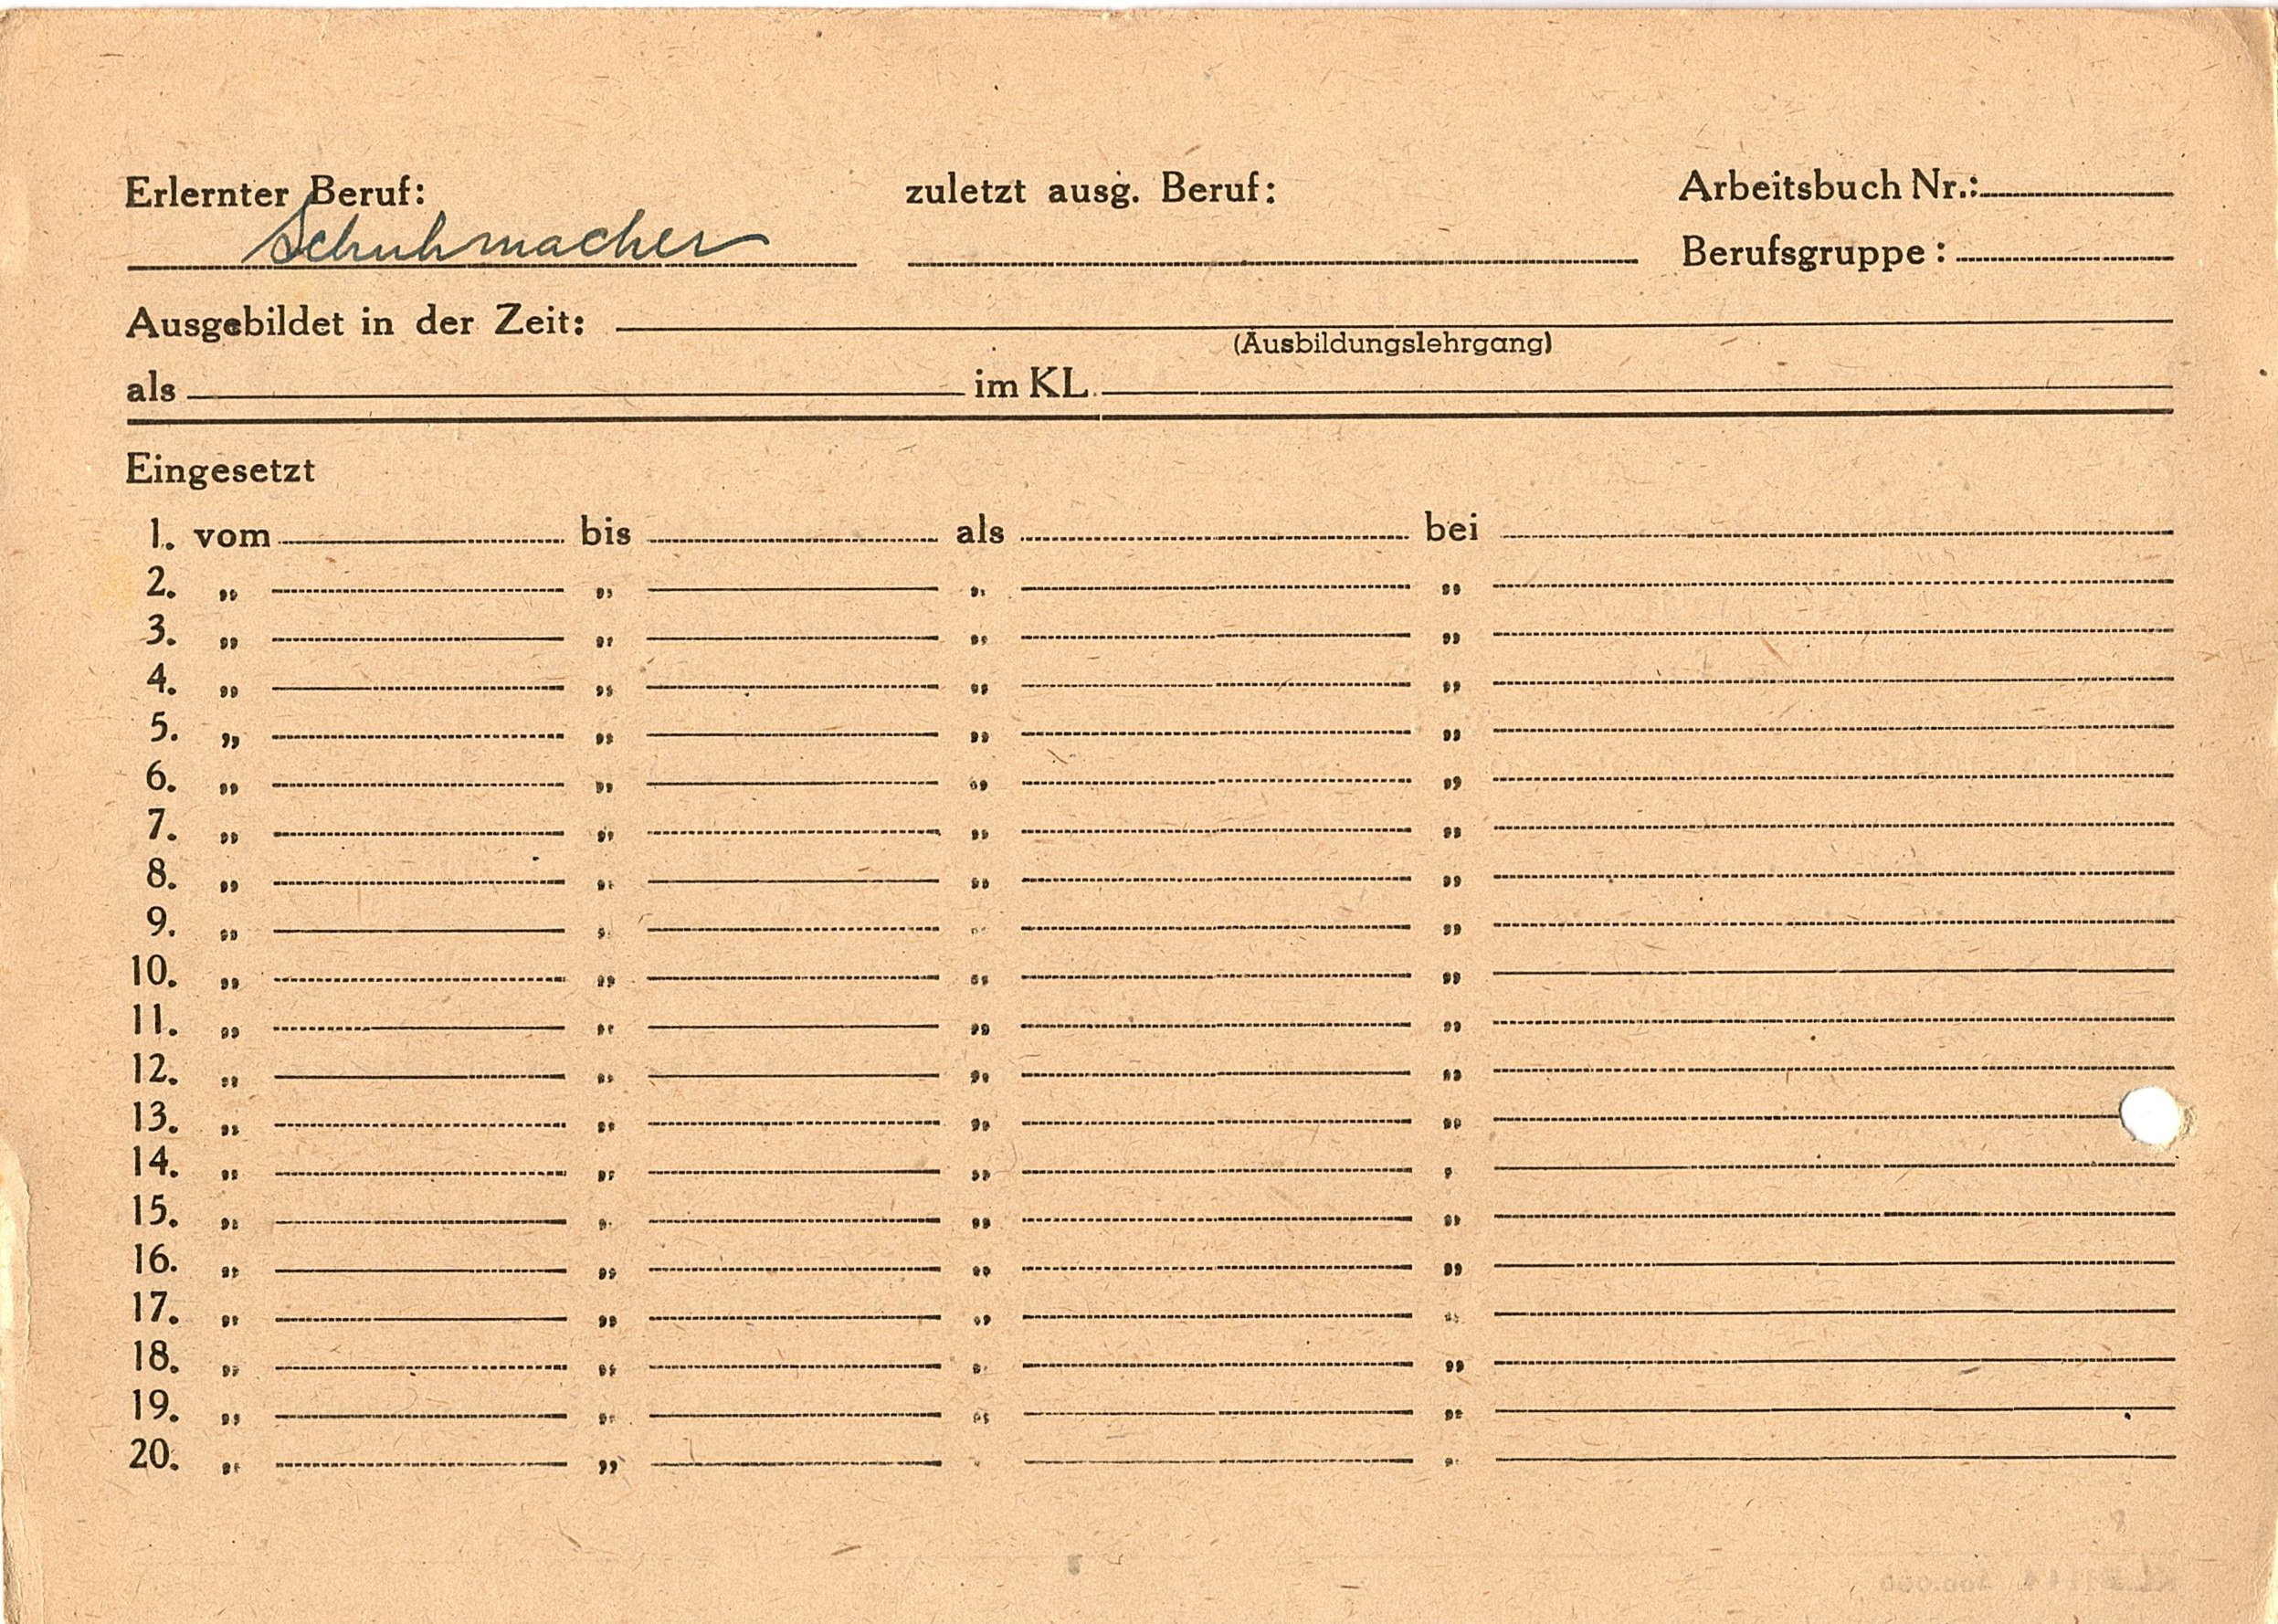 Erlernter Beruf: zuletzt ausg. Beruf: Arbeitsbuch Nr.:
Schuhmacher Berufsgruppe :
Ausgebildet in der Zeit:
(Ausbildungslehrgang)
als im KL.
Eingesetzt
1. vom bis als bei
2. „ „ „ „
3. „ „ „ „
4. „ „ „ „
5. „ „ „ „
6. „ „ „ „
7. „ „ „ „
8. „ „ „ „
9. „ „ „ „
10. „ „ „ „
11. „ „ „ „
12. „ „ „ „
13. „ „ „ „
14. „ „ „ „
15. „ „ „ „
16. „ „ „ „
17. „ „ „ „
18. „ „ „ „
19. „ „ „ „
20. „ „ „ „